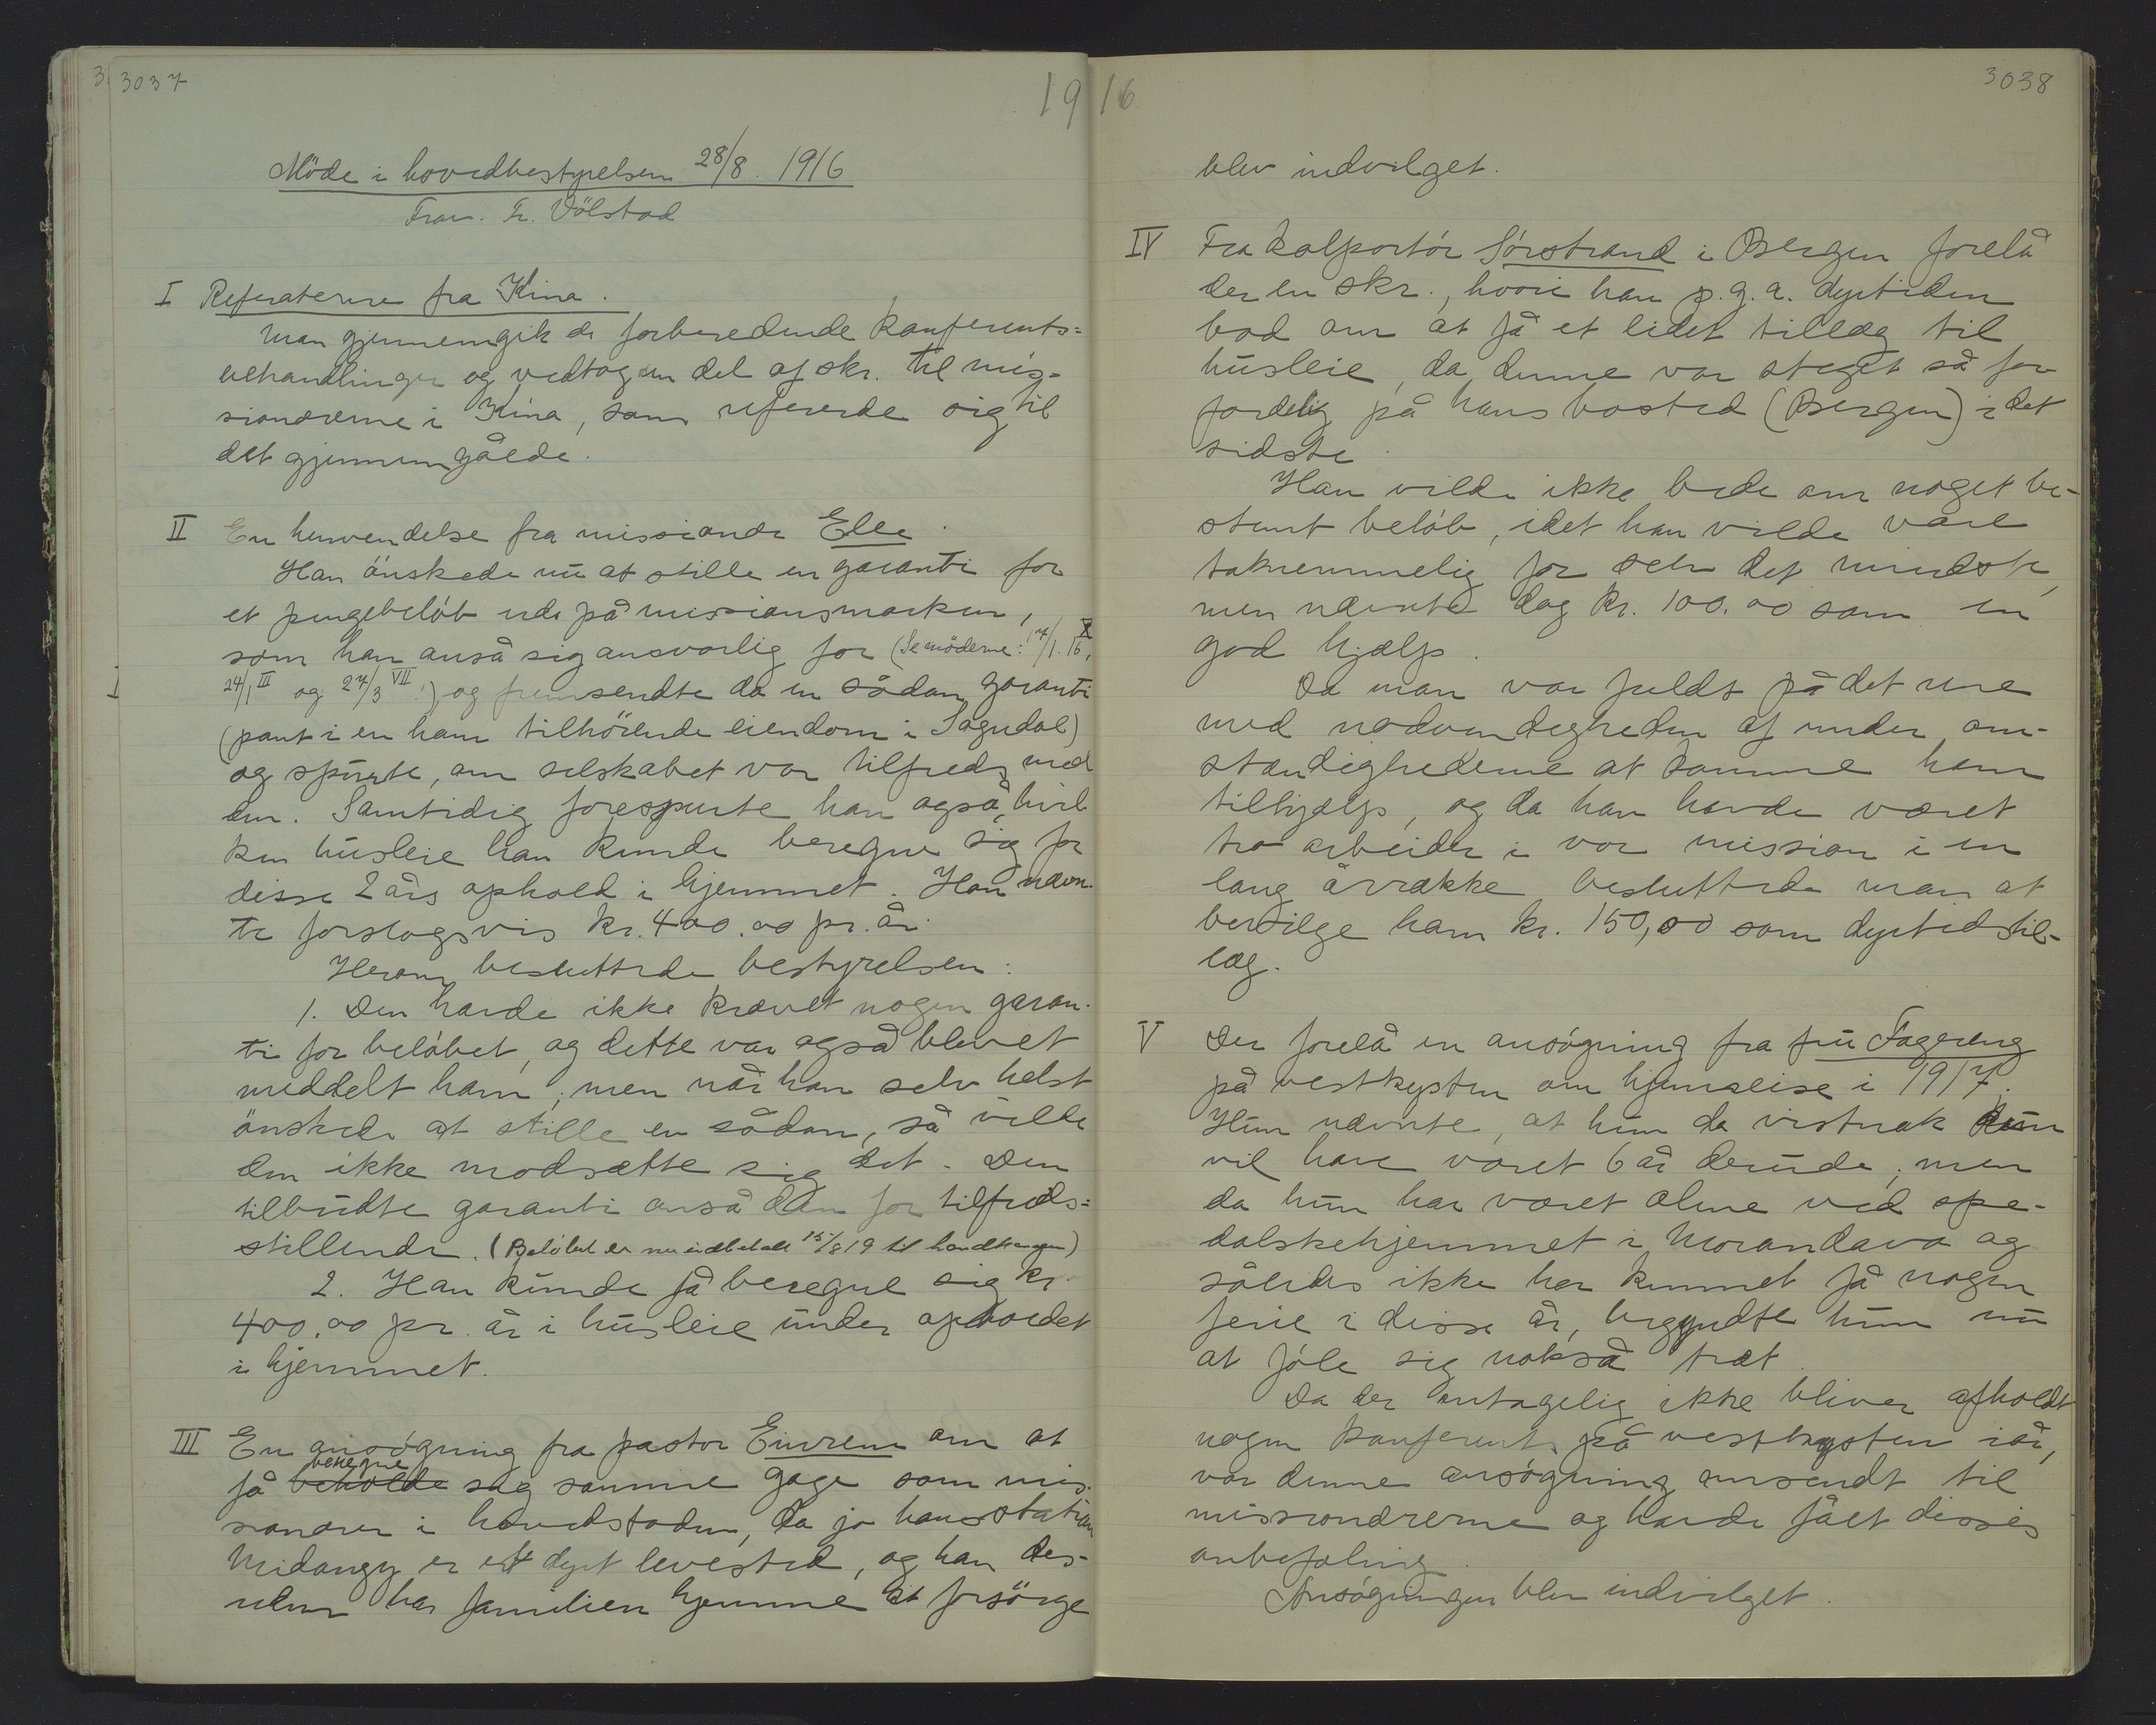 3037
1916
Möde i hovedbestyrelsen 28/8. 1916
Frav. Fr. Völstad
I Referaterne fra Kina.
Man gjennemgik de forberedende konferents=
behandlinger og vedtog en del af skr. til mis-
sionærerne i Kina, som refererede sig til
det gjennemgåede.
II En henvendelse fra missionær Elle.
Han önskede nu at stille en garanti for
et pengebelöb ude på missionsmarken,
som han anså sig ansvarlig for (Se möderne: 17/1.16, X
24/1 III og 27/3 VII!) og fremsendte da en sådan garanti
(pant i en ham tilhörende eiendom i Sogndal)
og spurte, om selskabet var tilfreds med
den. Samtidig forespurte han også, hvil
ken husleie han kunde beregne sig for
disse 2 års ophold i hjemmet. Han nævn-
te forslagsvis kr. 400.00 pr. år.
Herom besluttede bestyrelsen:
1. Den havde ikke krævet nogen garan-
ti for belöbet, og dette var også blevet
meddelt ham; men når han selv helst
önskede at stille en sådan, så vilde
den ikke modsætte sig det. Den
tilbudte garanti anså den for tilfreds=
stillende. (Belöbet er nu indbetalt 15/8 19 til
2. Han kunde få beregne sig kr.
400.00 pr. år i husleie under opholdet
i hjemmet.
III En ansögning fra pastor Einrem om at
få beholde beregne sig samme gage som mis-
sionærer i hovedstaden, da jo hans station
Midongy er et dyrt levested, og han des-
uden har familien hjemme at forsörge
3038
blev indvilget.
IV Fra kolportör Sörstrand i Bergen forelå
der en skr., hvori han p.g.a. dyrtiden
bad om at få et lidet tillæg til
husleie, da denne var steget så for
færdelig på hans bosted (Bergen) i det
sidste.
Han vilde ikke bede om noget be-
stemt belöb, idet han vilde være
taknemmelig for selv det mindste,
men nævnte dog kr. 100.00 som en
god hjælp.
Da man var fuldt på det rene
med nödvendigheden af under om-
stændighederne at komme ham
tilhjælp, og da han havde været
tro arbeider i vor mission i en
lang årrække besluttede man at
bevilge ham kr. 150,00 som dyrtidstil-
læg.
V Der forelå en ansögning fra fru Fagereng
på vestkysten om hjemreise i 1917.
Hun nævnte, at hun da vistnok kun
vil have været 6 år derude; men
da hun har været alene ved spe-
dalskehjemmet i Morondava og
således ikke har kunnet få nogen
ferie i disse år, begyndte hun nu
at föle sig nokså træt.
Da der antagelig ikke bliver afholdt
nogen konferents på vestkysten iår,
var denne ansögning omsendt til
missionærerne og havde fået disses
anbefaling.
Ansögningen blev indvilget.